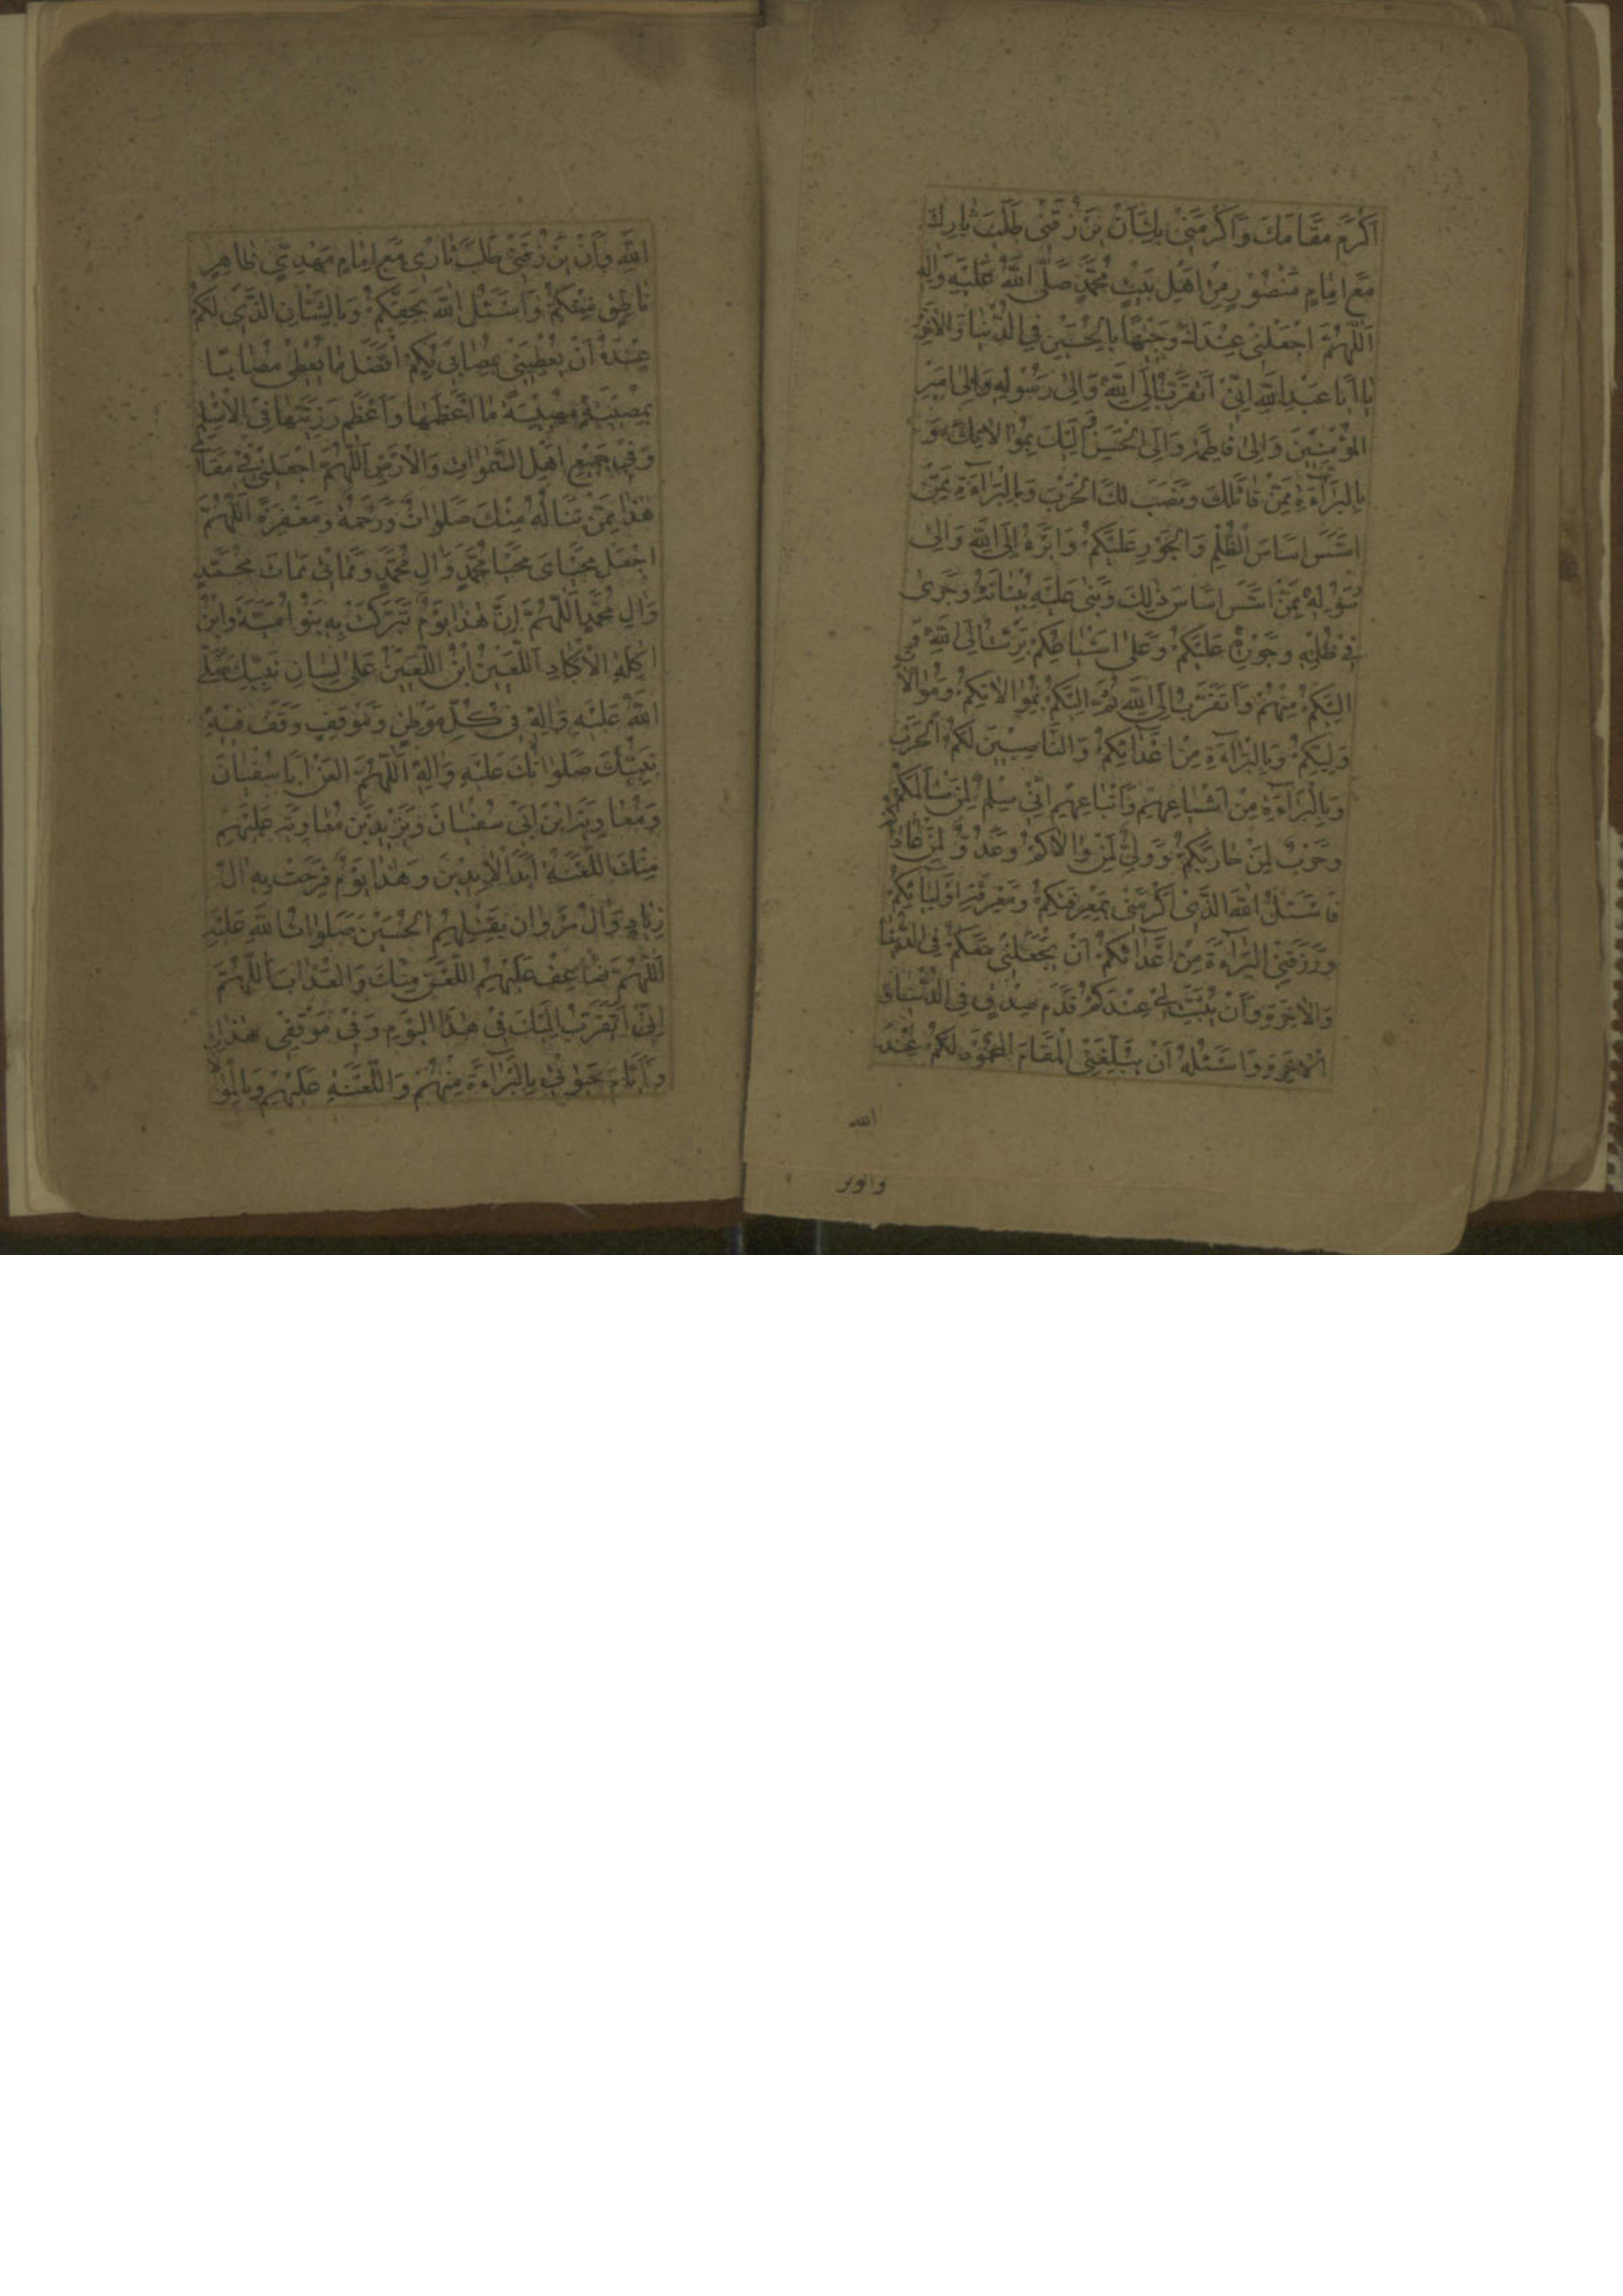 اَكْرَمَ مَقامَكَ وَاَكْرَمَنى بِكَ اَنْ يَرْزُقَنى طَلَبَ ثارِكَ
مَعَ اِمامٍ مَنْصُورٍ مِنْ اَهْلِ بَيْتِ مُحَمَّدٍ صَلَّى اللّهُ عَلَيْهِ وَالِهِ
اَللّهُمَّ اجْعَلْنى عِنْدَكَ وَجيهًا بِالْحُسَيْنِ فِى الدُّنْيا وَالْاخِرَةِ
يا اَبا عَبْدِ اللّهِ اِنّى اَتَقَرَّبُ اِلَى اللّهِ وَاِلى رَسُولِهِ وَاِلى اَميرِ
الْمُؤْمِنينَ وَاِلى فاطِمَةَ وَاِلَى الْحَسَنِ اِلَيْكَ بِمُوالاتِكَ وَ
بِالْبَراءَةِ مِمَّنْ قاتَلَكَ وَنَصَبَ لَكَ الْحَرْبَ وَبِالْبَراءَةِ مِمَّنْ
اَسَّسَ اَساسَ الظُّلْمِ وَالْجَوْرِ عَلَيْكُمْ وَاَبْرَءُ اِلَى اللّهِ وَاِلى
رَسُولِهِ مِمَّنْ اَسَّسَ اَساسَ ذلِكَ وَبَنى عَلَيْهِ بُنْيانَهُ وَجَرى
فى ظُلْمِهِ وَجَوْرِهِ عَلَيْكُمْ وَعَلى اَشْياعِكُمْ بَرِئْتُ اِلَى اللّهِ وَ
اِلَيْكُمْ مِنْهُمْ وَاَتَقَرَّبُ اِلَى اللّهِ ثُمَّ اِلَيْكُمْ بِمُوالاتِكُمْ وَمُوالاةِ
وَلِيِّكُمْ وَبِالْبَراءَةِ مِنْ اَعْدائِكُمْ وَالنّاصِبينَ لَكُمُ الْحَرْبَ
وَبِالْبَراءَةِ مِنْ اَشْياعِهِمْ وَاَتْباعِهِمْ اِنّى سِلْمٌ لِمَنْ سالَمَكُمْ
وَحَرْبٌ لِمَنْ حارَبَكُمْ وَوَلِىٌّ لِمَنْ والاكُمْ وَعَدُوٌّ لِمَنْ عاداكُمْ
فَاَسْئَلُ اللّهَ الَّذى اَكْرَمَنى بِمَعْرِفَتِكُمْ وَمَعْرِفَةِ اَوْلِيائِكُمْ
وَرَزَقَنِى الْبَراءَةَ مِنْ اَعْدائِكُمْ اَنْ يَجْعَلَنى مَعَكُمْ فِى الدُّنْيا
وَالْاخِرَةِ وَاَنْ يُثَبِّتَ لى عِنْدَكُمْ قَدَمَ صِدْقٍ فِى الدُّنْيا وَ
الْاخِرَةِ وَاَسْئَلُهُ اَنْ يُبَلِّغَنِى الْمَقامَ الْمَحْمُودَ لَكُمْ عِنْدَ
الله
اللّهِ وَاَنْ يَرْزُقَنى طَلَبَ ثارى مَعَ اِمامٍ مَهْدِىٍّ ظاهِرٍ
ناطِقٍ مِنْكُمْ وَاَسْئَلُ اللّهَ بِحَقِّكُمْ وَبِالشَّاْنِ الَّذى لَكُمْ
عِنْدَهُ اَنْ يُعْطِيَنى بِمُصابى بِكُمْ اَفْضَلَ ما يُعْطى مُصابًا
بِمُصيبَتِهِ مُصيبَةً ما اَعْظَمَها وَاَعْظَمَ رَزِيَّتَها فِى الْاِسْلامِ
وَفى جَميعِ اَهْلِ السَّمواتِ وَالْاَرْضِ اَللّهُمَّ اجْعَلْنى فى مَقامى
هذا مِمَّنْ تَنالُهُ مِنْكَ صَلَواتٌ وَرَحْمَةٌ وَمَغْفِرَةٌ اَللّهُمَّ
اجْعَلْ مَحْياىَ مَحْيا مُحَمَّدٍ وَالِ مُحَمَّدٍ وَمَماتى مَماتَ مُحَمَّدٍ
وَالِ مُحَمَّدٍ اَللّهُمَّ اِنَّ هذا يَوْمٌ تَبَرَّكَتْ بِهِ بَنُو اُمَيَّةَ وَابْنُ
اكِلَةِ الْاَكْبادِ اللَّعينُ ابْنُ اللَّعينِ عَلى لِسانِ نَبِيِّكَ صَلَّى
اللّهُ عَلَيْهِ وَالِهِ فى كُلِّ مَوْطِنٍ وَمَوْقِفٍ وَقَفَ فيهِ
نَبِيُّكَ صَلَواتُكَ عَلَيْهِ وَالِهِ اَللّهُمَّ الْعَنْ اَبا سُفْيانَ
وَمُعاوِيَةَ ابْنَ اَبى سُفْيانَ وَيَزيدَ بْنَ مُعاوِيَةَ عَلَيْهِمْ
مِنْكَ اللَّعْنَةُ اَبَدَ الْابِدينَ وَهذا يَوْمٌ فَرِحَتْ بِهِ الُ
زِيادٍ وَالُ مَرْوانَ بِقَتْلِهِمُ الْحُسَيْنَ صَلَواتُ اللّهِ عَلَيْهِ
اَللّهُمَّ ضاعِفْ عَلَيْهِمُ اللَّعْنَ مِنْكَ وَالْعَذابَ اَللّهُمَّ
اِنّى اَتَقَرَّبُ اِلَيْكَ فى هذَا الْيَوْمِ وَفى مَوْقِفى هذا
وَاَيّامِ حَيوتى بِالْبَراءَةِ مِنْهُمْ وَاللَّعْنَةِ عَلَيْهِمْ وَبِالْمُوالاةِ